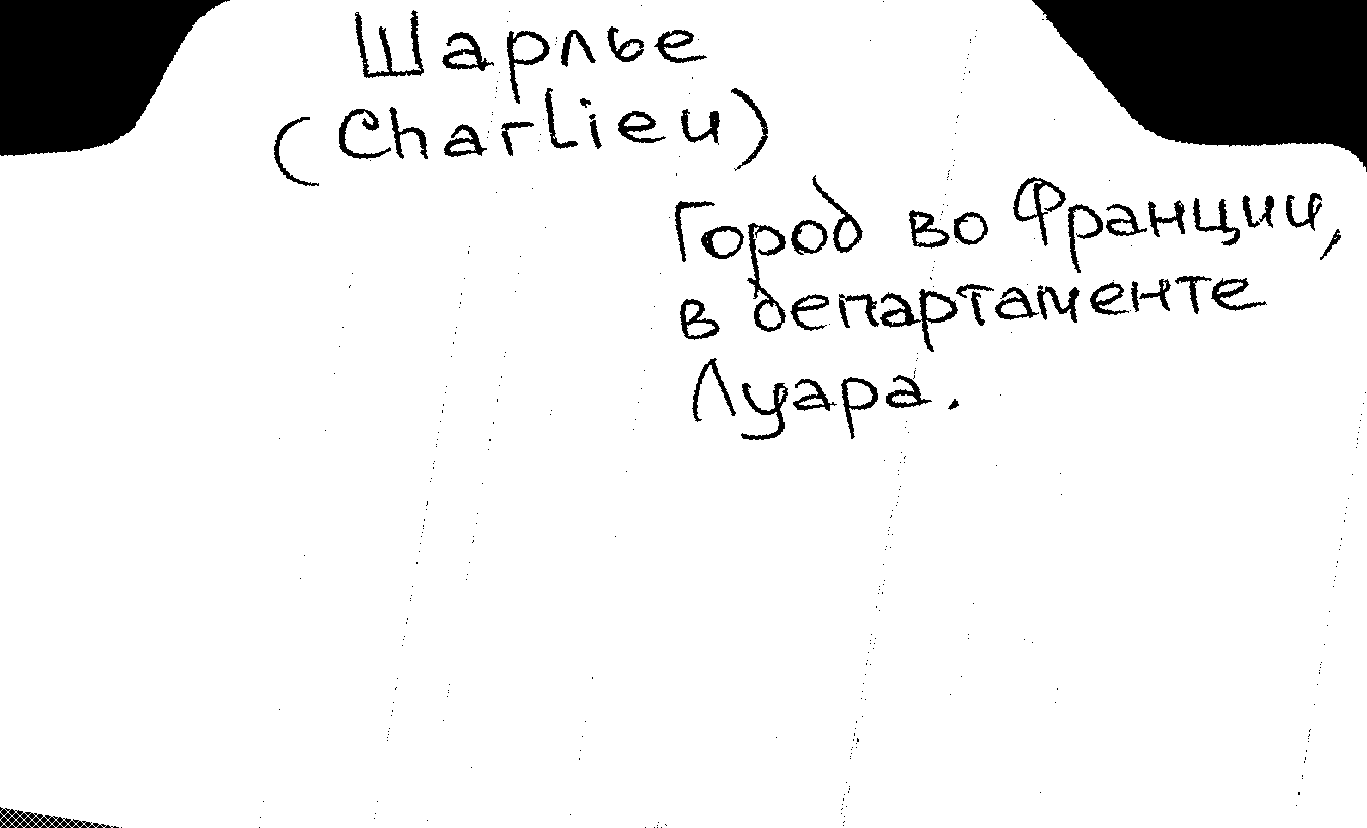 Шарлье
(Charlieu)
Город во Франции,
в департаменте
Луара.